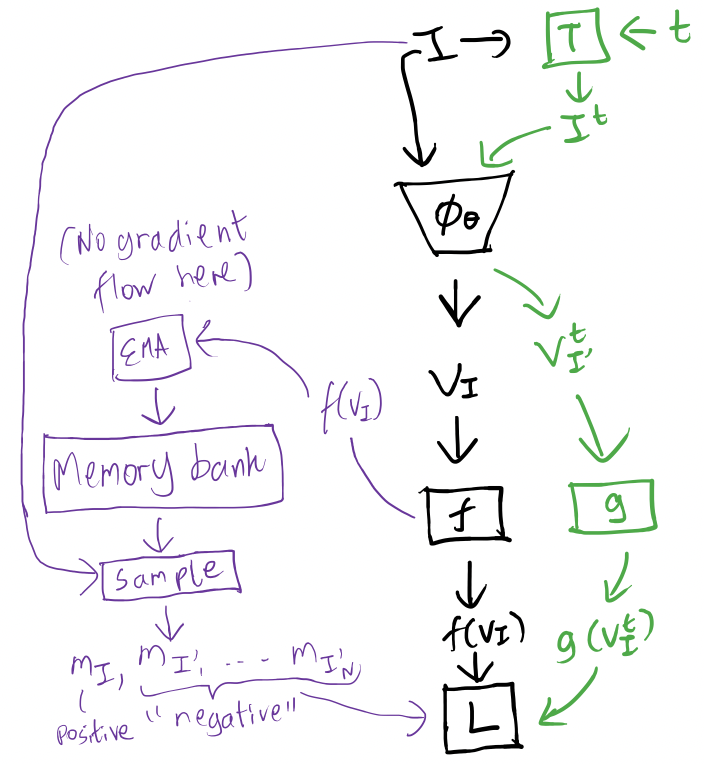 I → T ← t
I^t
ϕ_θ
(No gradient
flow here)
EMA
V_I'^t
V_I
f(V_I)
Memory bank
f
g
Sample
f(V_I)
g(V_I^t)
m_I, m_I'_1 .... m_I'_N
positive "negative"
L